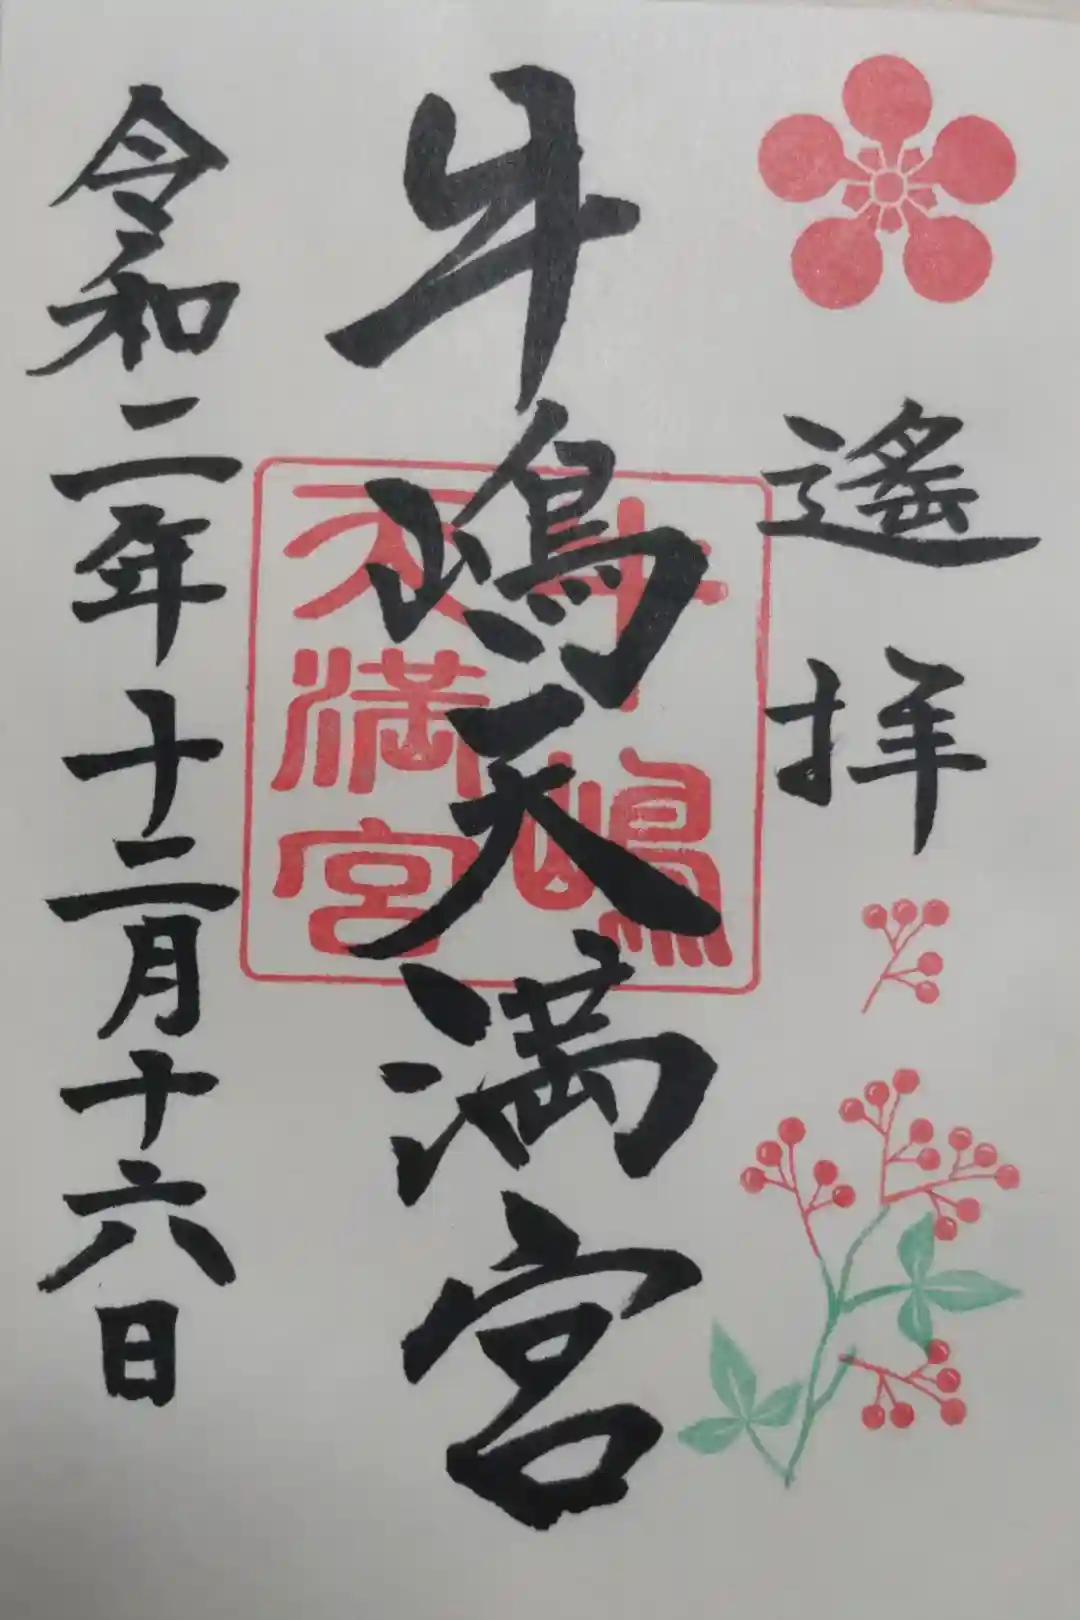 遙拝
牛嶋天満宮
牛嶋
天満宮
令和二年十二月十六日